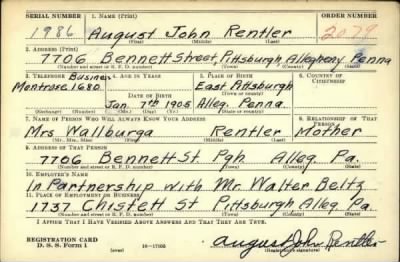 SERIAL NUMBER 1. NAME (Print) ORDER NUMBER
1986 August John Rentler 2079
(First) (Middle) (Last)
2. ADDRESS (Print)
7706 Bennett Street, Pittsburgh, Allegheny Penna
(Number and street or R. F. D. number) (Town) (County) (State)
3. TELEPHONE Business 4. AGE IN YEARS 5. PLACE OF BIRTH 6. COUNTRY OF CITIZENSHIP
Montrose 1680 East Pittsburgh
DATE OF BIRTH (Town or county)
Jan 7th 1905 Alleg. Penna.
(Exchange) (Number) (Mo.) (Day) (Yr.) (State or country)
7. NAME OF PERSON WHO WILL ALWAYS KNOW YOUR ADDRESS 8. RELATIONSHIP OF THAT PERSON
Mrs Wallburga Rentler Mother
(Mr., Mrs., Miss) (First) (Middle) (Last)
9. ADDRESS OF THAT PERSON
7706 Bennett St Pgh Alleg Pa.
(Number and street or R. F. D. number) (Town) (County) (State)
10. EMPLOYER'S NAME
In Partnership with Mr. Walter Beltz
11. PLACE OF EMPLOYMENT OR BUSINESS
1737 Chislett St Pittsburgh Alleg Pa.
(Number and street or R. F. D. number) (Town) (County) (State)
I AFFIRM THAT I HAVE VERIFIED ABOVE ANSWERS AND THAT THEY ARE TRUE.
REGISTRATION CARD
D. S. S. Form 1 (over) 16—17105 August John Rentler
(Registrant's signature)